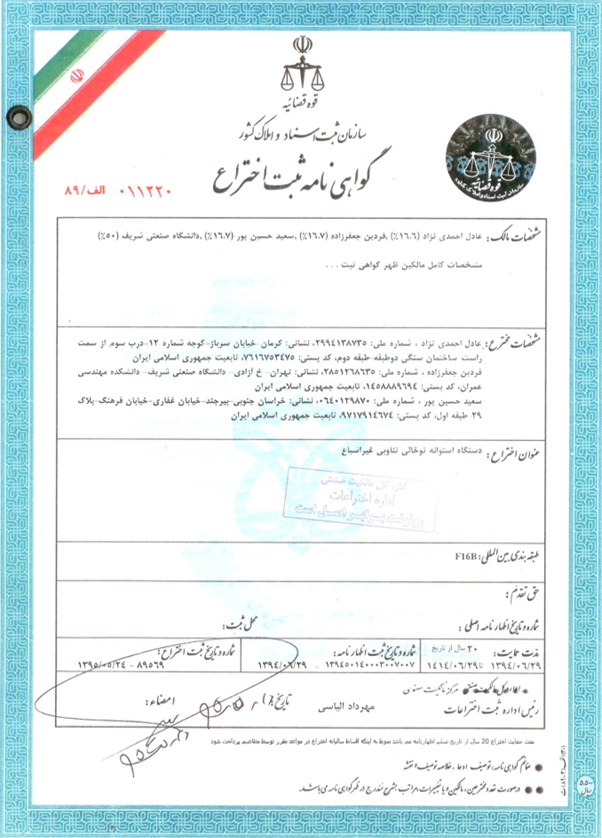 قوه قضائیه
سازمان ثبت اسناد و املاک کشور
گواهی نامه ثبت اختراع
۰۱۱۳۲۰ الف/۸۹
قوه قضائیه
سازمان ثبت اسناد و املاک کشور
مشخصات مالک: عادل احمدی نژاد (۱۶.۶٪) ,فردین جعفرزاده (۱۶.۷٪) ,سعید حسین پور (۱۶.۷٪) ,دانشگاه صنعتی شریف (۵۰٪)
مشخصات کامل مالکین ظهر گواهی ثبت . . .
مشخصات مخترع: عادل احمدی نژاد ، شماره ملی: ۲۹۹۴۱۳۸۷۳۵، نشانی: کرمان خیابان سرباز-کوچه شماره ۱۲-درب سوم از سمت
راست ساختمان سنگی دوطبقه طبقه دوم، کد پستی: ۷۶۱۶۷۵۳۴۷۵، تابعیت جمهوری اسلامی ایران
فردین جعفرزاده ، شماره ملی: ۲۸۵۱۲۶۸۶۳۵، نشانی: تهران- خ آزادی- دانشگاه صنعتی شریف- دانشکده مهندسی
عمران، کد پستی: ۱۴۵۸۸۸۹۶۹۴، تابعیت جمهوری اسلامی ایران
سعید حسین پور ، شماره ملی: ۰۶۴۰۱۲۹۸۷۰، نشانی: خراسان جنوبی-بیرجند-خیابان غفاری-خیابان فرهنگ-پلاک
۲۹ طبقه اول، کد پستی: ۹۷۱۷۹۱۴۶۷۴، تابعیت جمهوری اسلامی ایران
عنوان اختراع: دستگاه استوانه توخالی تناوبی غیراشباع
اداره کل مالکیت صنعتی
اداره اختراعات
رونوشت برابر اصل است
طبقه بندی بین المللی: F16B
حق تقدم:
شماره و تاریخ اظهارنامه اصلی:
محل ثبت:
مدت حمایت: ۲۰ سال از تاریخ
۱۳۹۴/۰۶/۲۹ تا ۱۴۱۴/۰۶/۲۹
شماره و تاریخ ثبت اظهارنامه:
۱۳۹۴۵۰۱۴۰۰۰۳۰۰۷۰۰۷ - ۱۳۹۴/۰۶/۲۹
شماره و تاریخ ثبت اختراع:
۸۹۵۶۹ - ۱۳۹۵/۰۵/۲۴
مرکز مالکیت معنوی
رئیس اداره ثبت اختراعات
مهرداد الیاسی
تاریخ:
امضاء:
مدت حمایت اختراع 20 سال از تاریخ تسلیم اظهارنامه می باشد منوط به اینکه اقساط سالیانه اختراع در مواعد مقرر توسط متقاضی پرداخت شود
ضمائم گواهی نامه: توصیف، ادعا، خلاصه توصیف و نقشه
در صورت تعدد مخترعین، مالکین و یا تغییرات، مراتب بشرح مندرج در ظهر گواهی نامه می باشد.